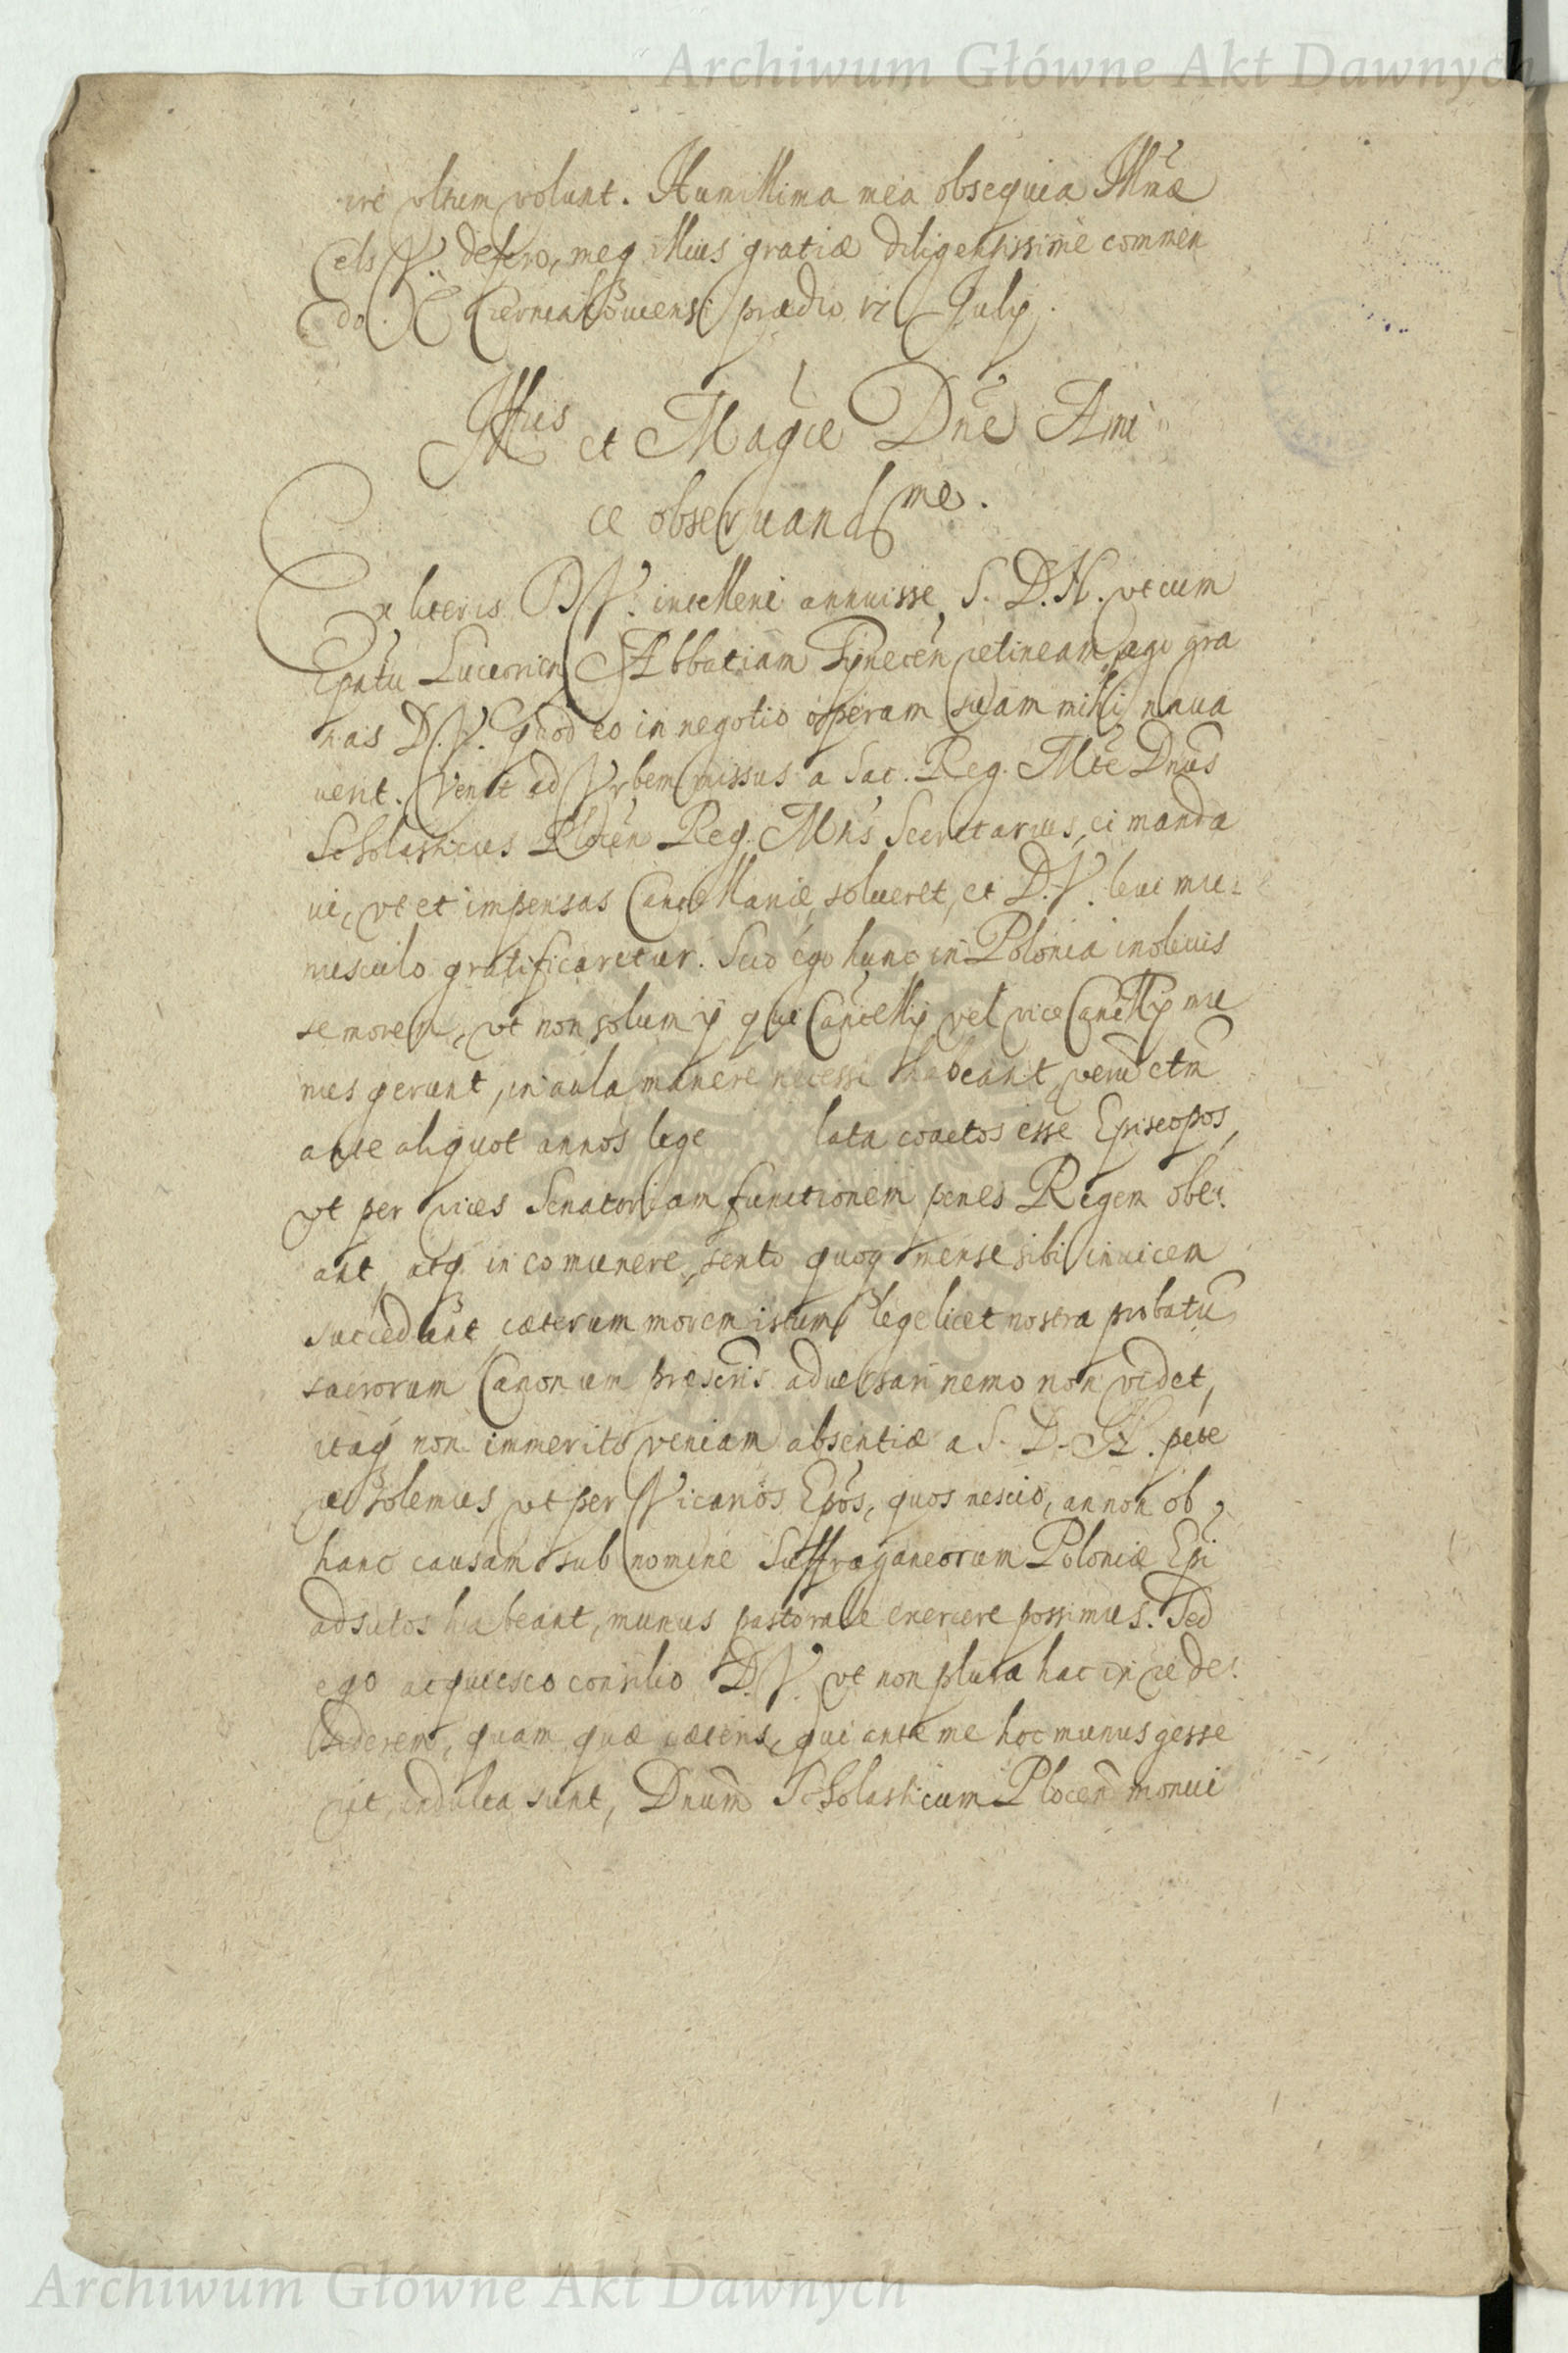 Archiwum Główne Akt Dawnych
ire ultum volunt. Humillima mea obsequia Illmæ
Cels V. defero, meq illius gratiæ diligentissime commen
do. prædio VI July.
Illris et Magce Dne Ami
ce observandme.
Ex literis D.V. intellexi annuisse S. D. N. vt cum
Epatu Luceorien Abbatiam Tynecen retineam, ago gra
tias D.V. quod eo in negotio operam suam mihi naua
uerit. Venit ad Vrbem missus a Sac. Reg. Mte Dnus
Scholasticus Plocen Reg. Mtis Secretarius, ei manda
ui, vt et impensas Cancellariæ solueret, et D.V. leui mu
nusculo gratificaretur. Scio ego hunc in Polonia inoleuis
se morem, vt non solum ij qui Cancellij vel vice Cancellij mu
nus gerunt, in aula manere necesse habeant, veru etm
ante aliquot annos lege lata coactos esse Episcopos,
vt per vices Senatoriam functionem penes Regem obe
ant, atq in eo munere, sexto quoq mense sibi inuicem
succedant, cæterum morem istum lege licet nostra probatu
sacrorum Canonum præscris aduersari nemo non videt,
itaq non immerito veniam absentiæ a S. D. N. pete
re solemus, vt per Vicarios Epos, quos nescio, an non ob
hanc causam sub nomine Suffraganeorum Poloniæ Epi
adscitos habeant, munus pastorale exercere possimus. Sed
ego acquiesco consilio D.V. vt non plura hac in re de
siderem, quam quæ cæteris, qui ante me hoc munus gesse
rut, indulta sunt, Dnum Scholasticum Plocen monui
Archiwum Główne Akt Dawnych